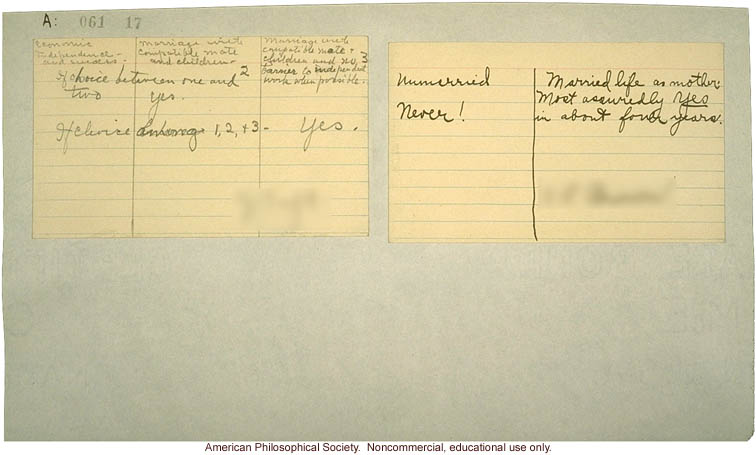 A: 061 17
Economic
independence -
and success.
Marriage with
compatible mate
and children -
2
Marriage with
compatible mate +
children and no 3
barrier to independent
work when possible.
If choice between one and
two yes.
If choice among 1, 2, + 3 - Yes.
Unmarried
Never!
Married life as mother.
Most assuredly Yes
in about four years.
American Philosophical Society. Noncommercial, educational use only.